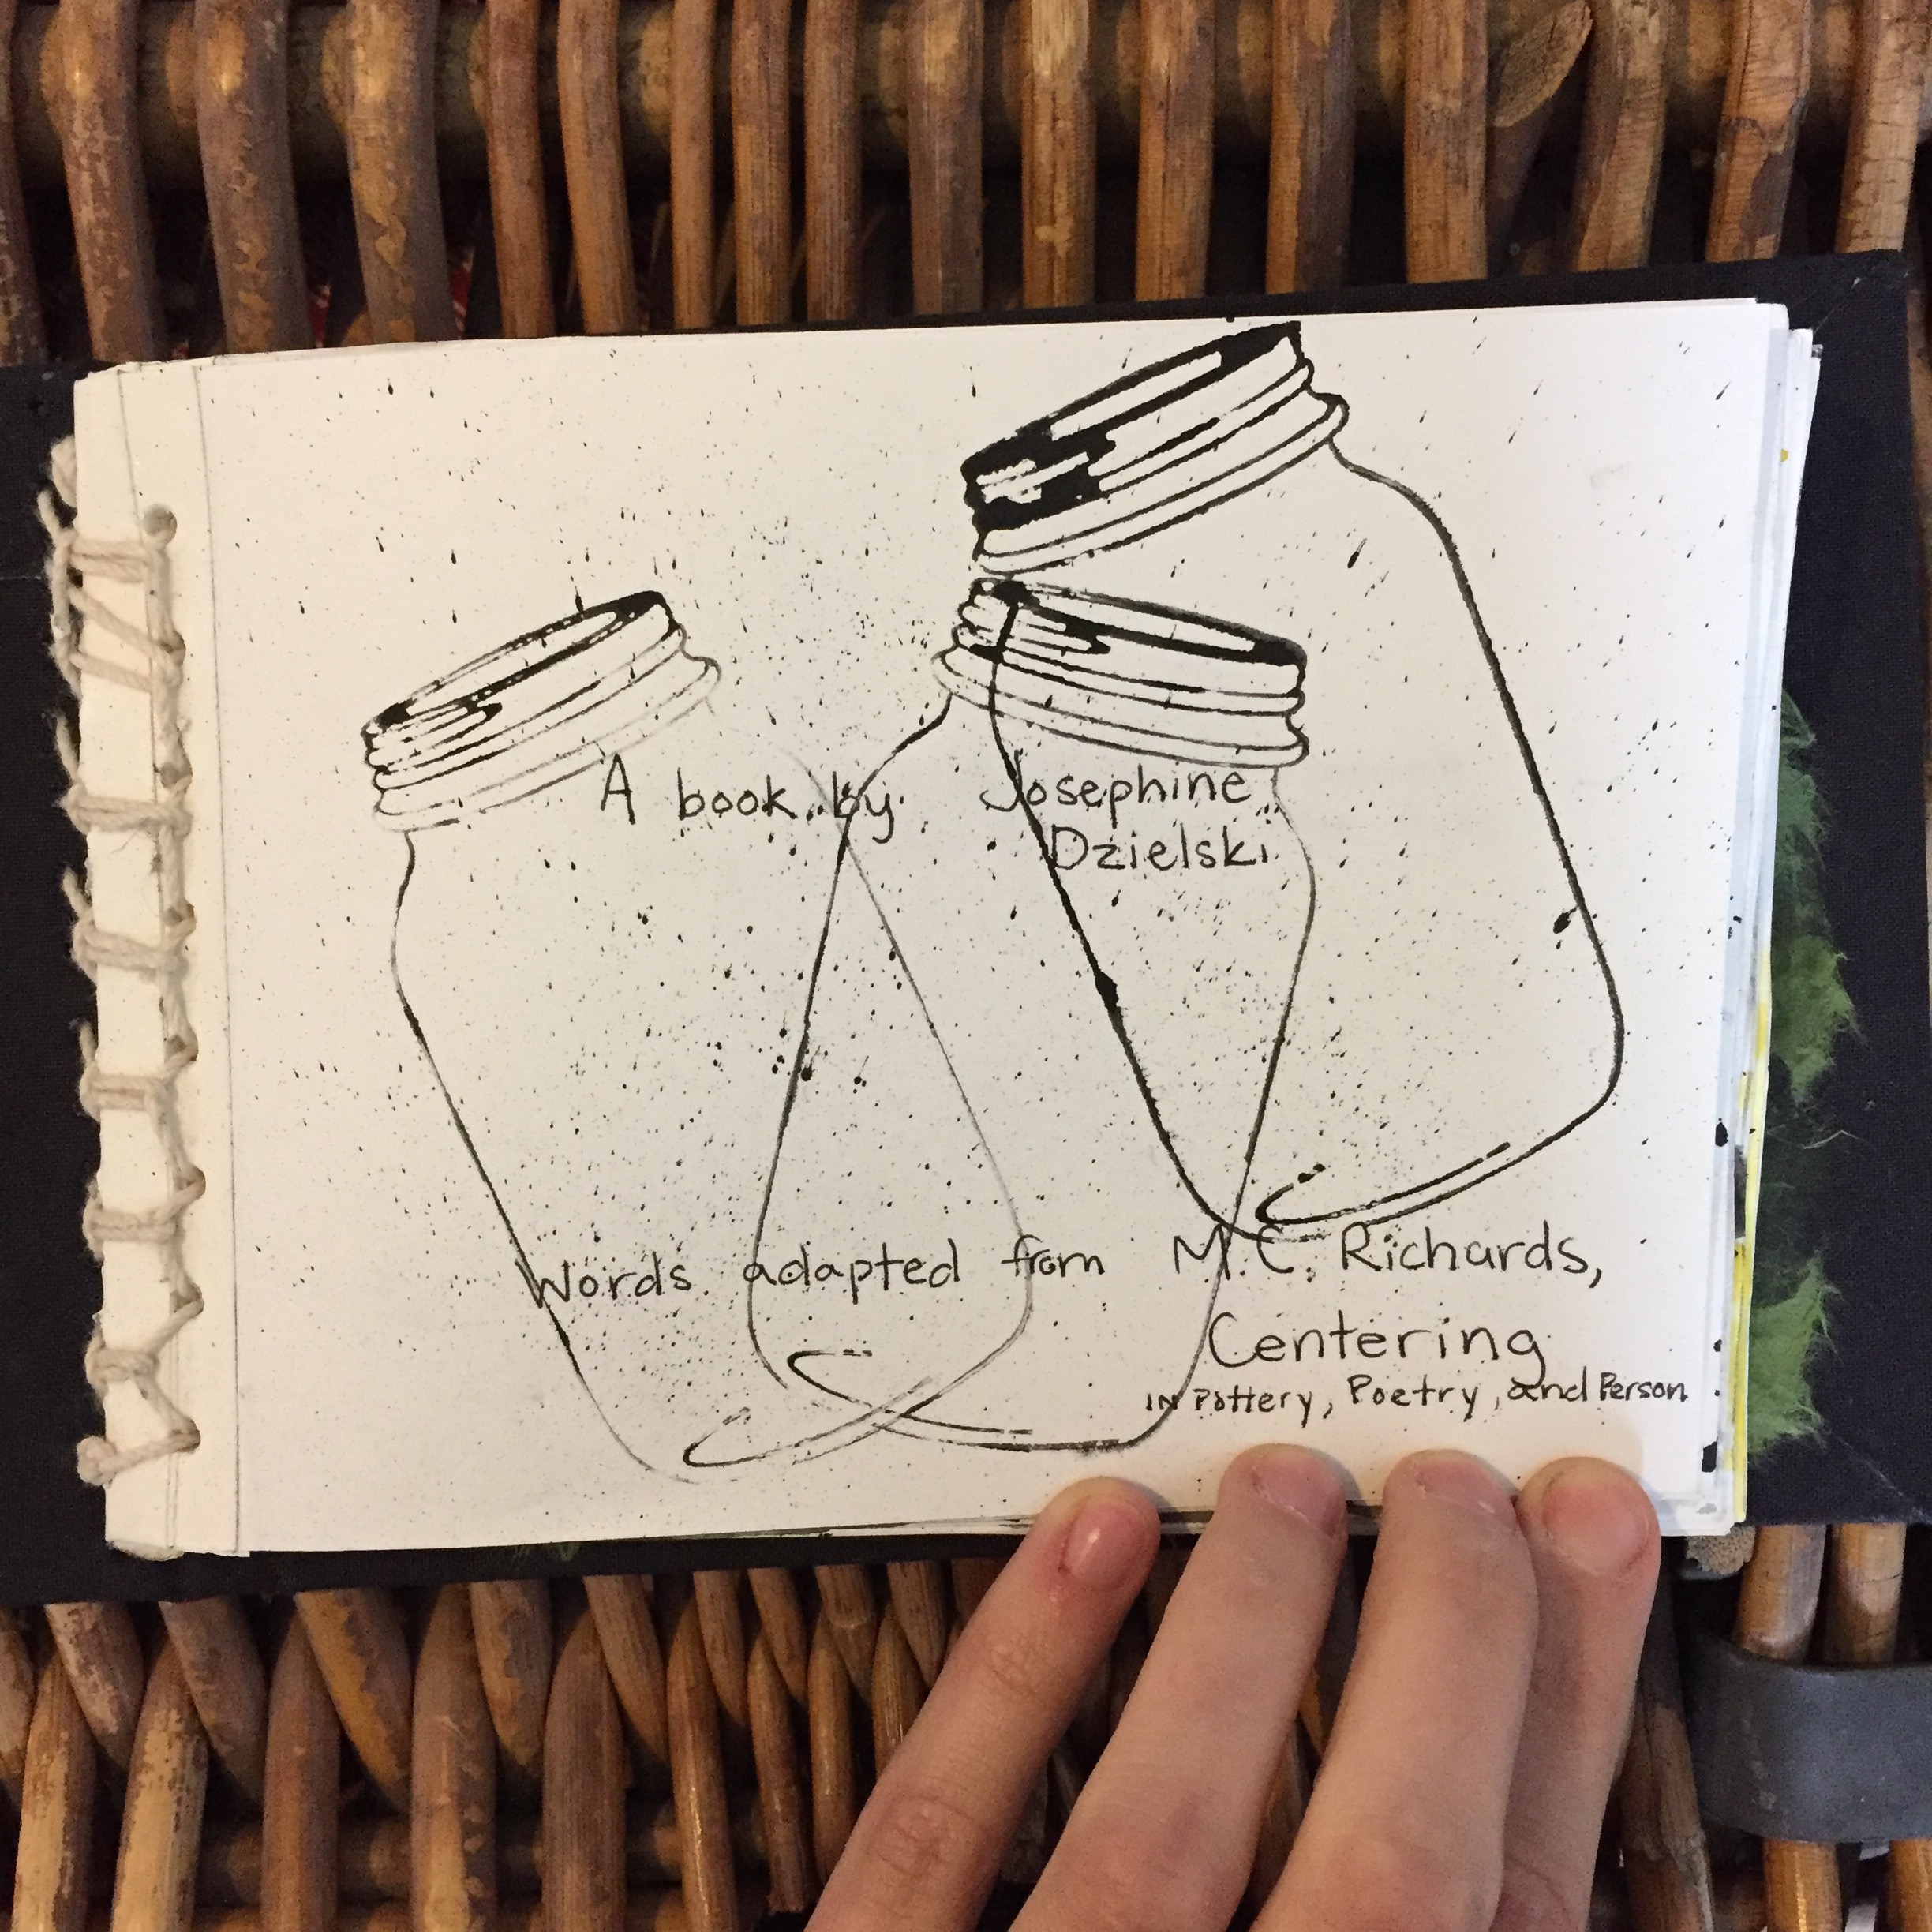 A book by Josephine
Dzielski
Words adapted from M.C. Richards,
Centering
IN Pottery, Poetry, and Person